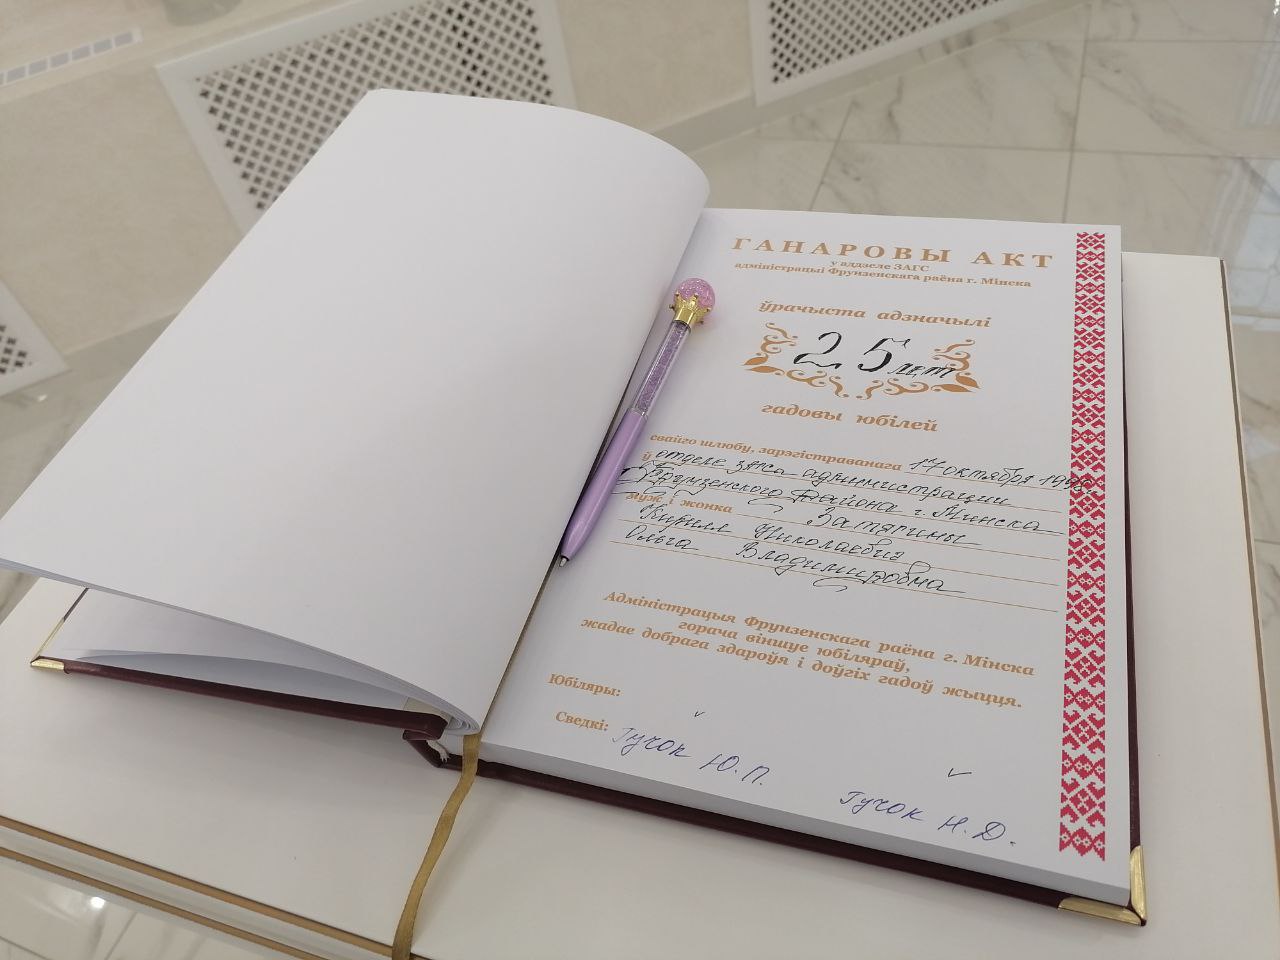 ГАНАРОВЫ АКТ
у аддзеле ЗАГС
адміністрацыі Фрунзенскага раёна г. Мінска
ўрачыста адзначылі
25 лет
гадовы юбілей
свайго шлюбу, зарэгістраванага 17 октября 1998г.
ў отделе загса администрации
Фрунзенского района г. Минска
муж і жонка Затягины
Кирилл Николаевич
Ольга Владимировна
Адміністрацыя Фрунзенскага раёна г. Мінска
горача віншуе юбіляраў,
жадае добрага здароўя і доўгіх гадоў жыцця.
Юбіляры:
Сведкі: Гучок Ю. П. Гучок Н. Д.